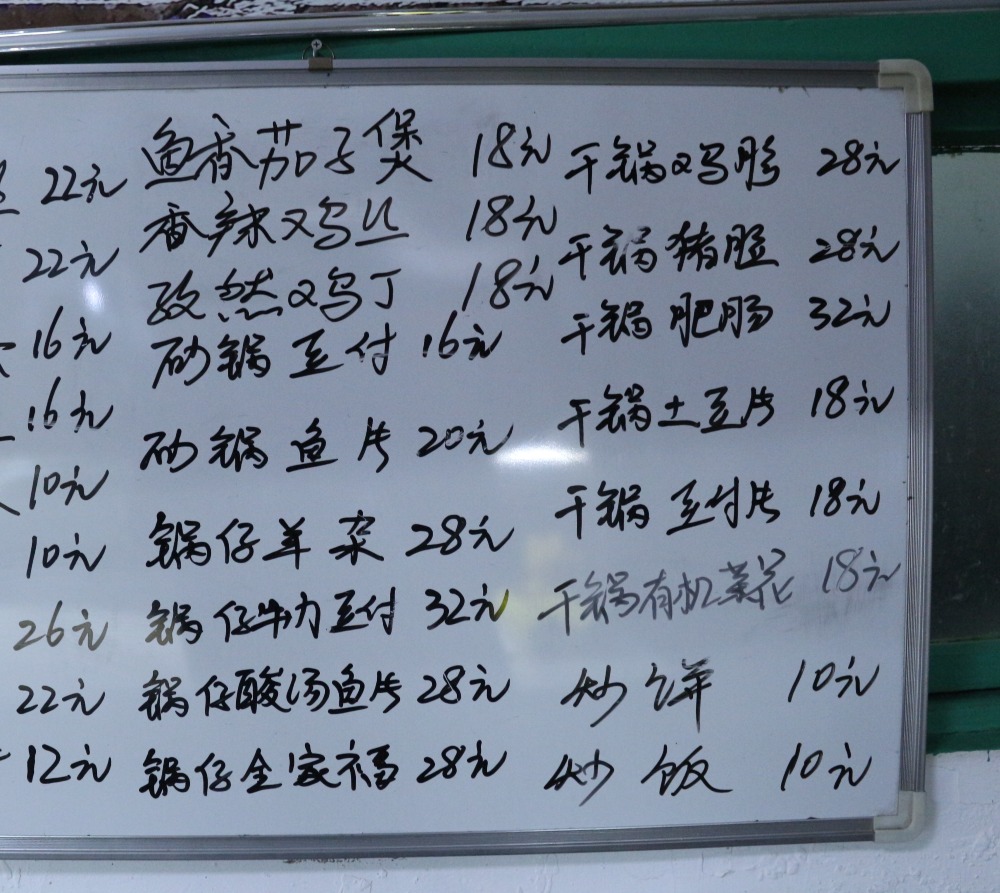 22元
22元
16元
16元
10元
10元
26元
22元
12元
鱼香茄子煲 18元
香辣鸡丝 18元
孜然鸡丁 18元
砂锅豆付 16元
砂锅鱼片 20元
锅仔羊杂 28元
锅仔牛力豆付 32元
锅仔酸汤鱼片 28元
锅仔全家福 28元
干锅鸡胗 28元
干锅猪脸 28元
干锅肥肠 32元
干锅土豆片 18元
干锅豆付片 18元
干锅有机菜花 18元
炒饼 10元
炒饭 10元